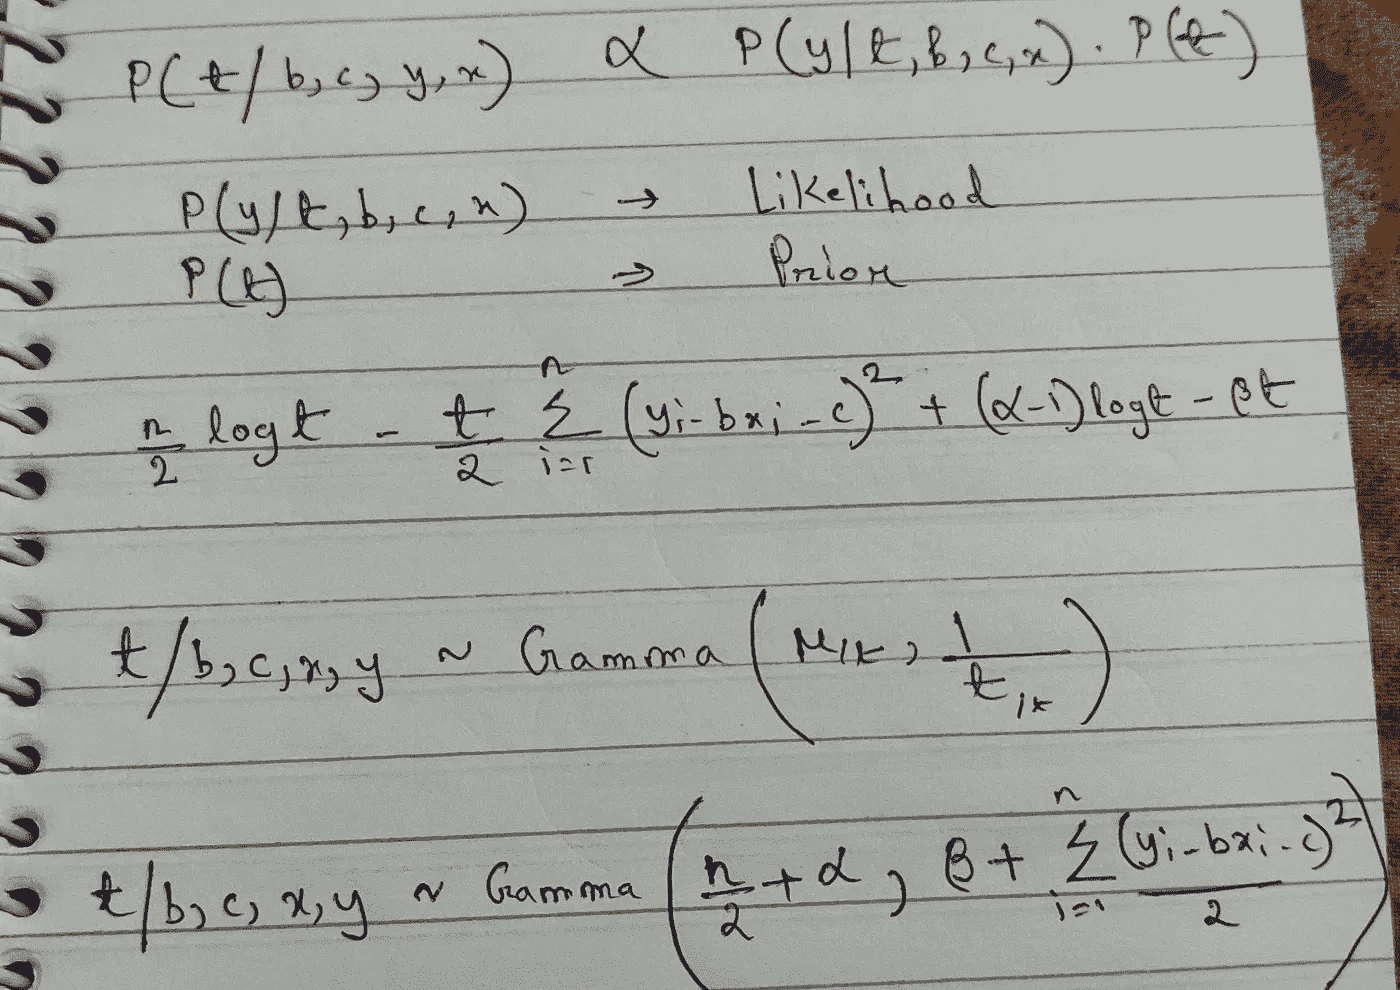 P(t/b,c,y,x) ∝ P(y|t,b,c,x).P(t)
P(y/t,b,c,x) → Likelihood
P(t) → Prior
n/2 log t - t/2 Σ_{i=1}^{n} (yi-bxi-c)^2 + (α-1) log t - βt
t/b,c,x,y ~ Gamma (μ1k, 1/t1k)
t/b,c,x,y ~ Gamma (n/2+α, β+ Σ_{i=1}^{n} (yi-bxi-c)^2/2)